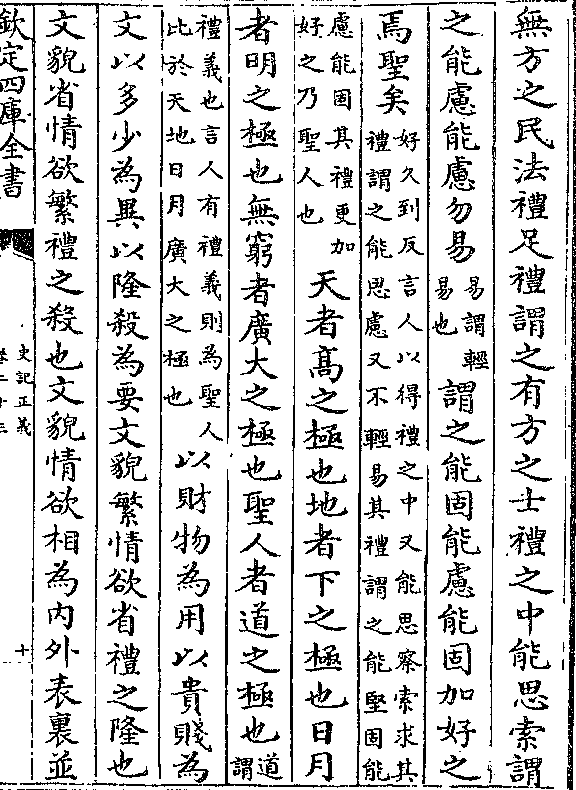 無方之民法禮足禮謂之有方之士禮之中能思索謂
之能慮能慮勿易易謂輕易也謂之能固能慮能固加好之
焉聖矣好久到反言人以得禮之中又能思察索求其禮謂之能思慮又不輕易其禮謂之能堅固能
慮能固其禮更加好之乃聖人也天者髙之極也地者下之極也日月
者明之極也無窮者廣大之極也聖人者道之極也道謂
禮義也言人有禮義則為聖人比於天地日月廣大之極也以財物為用以貴賤為
文以多少為異以隆殺為要文貌繁情欲省禮之隆也
文貌省情欲繁禮之殺也文貌情欲相為内外表裏並
欽定四庫全書
史記正義
卷二十三
十